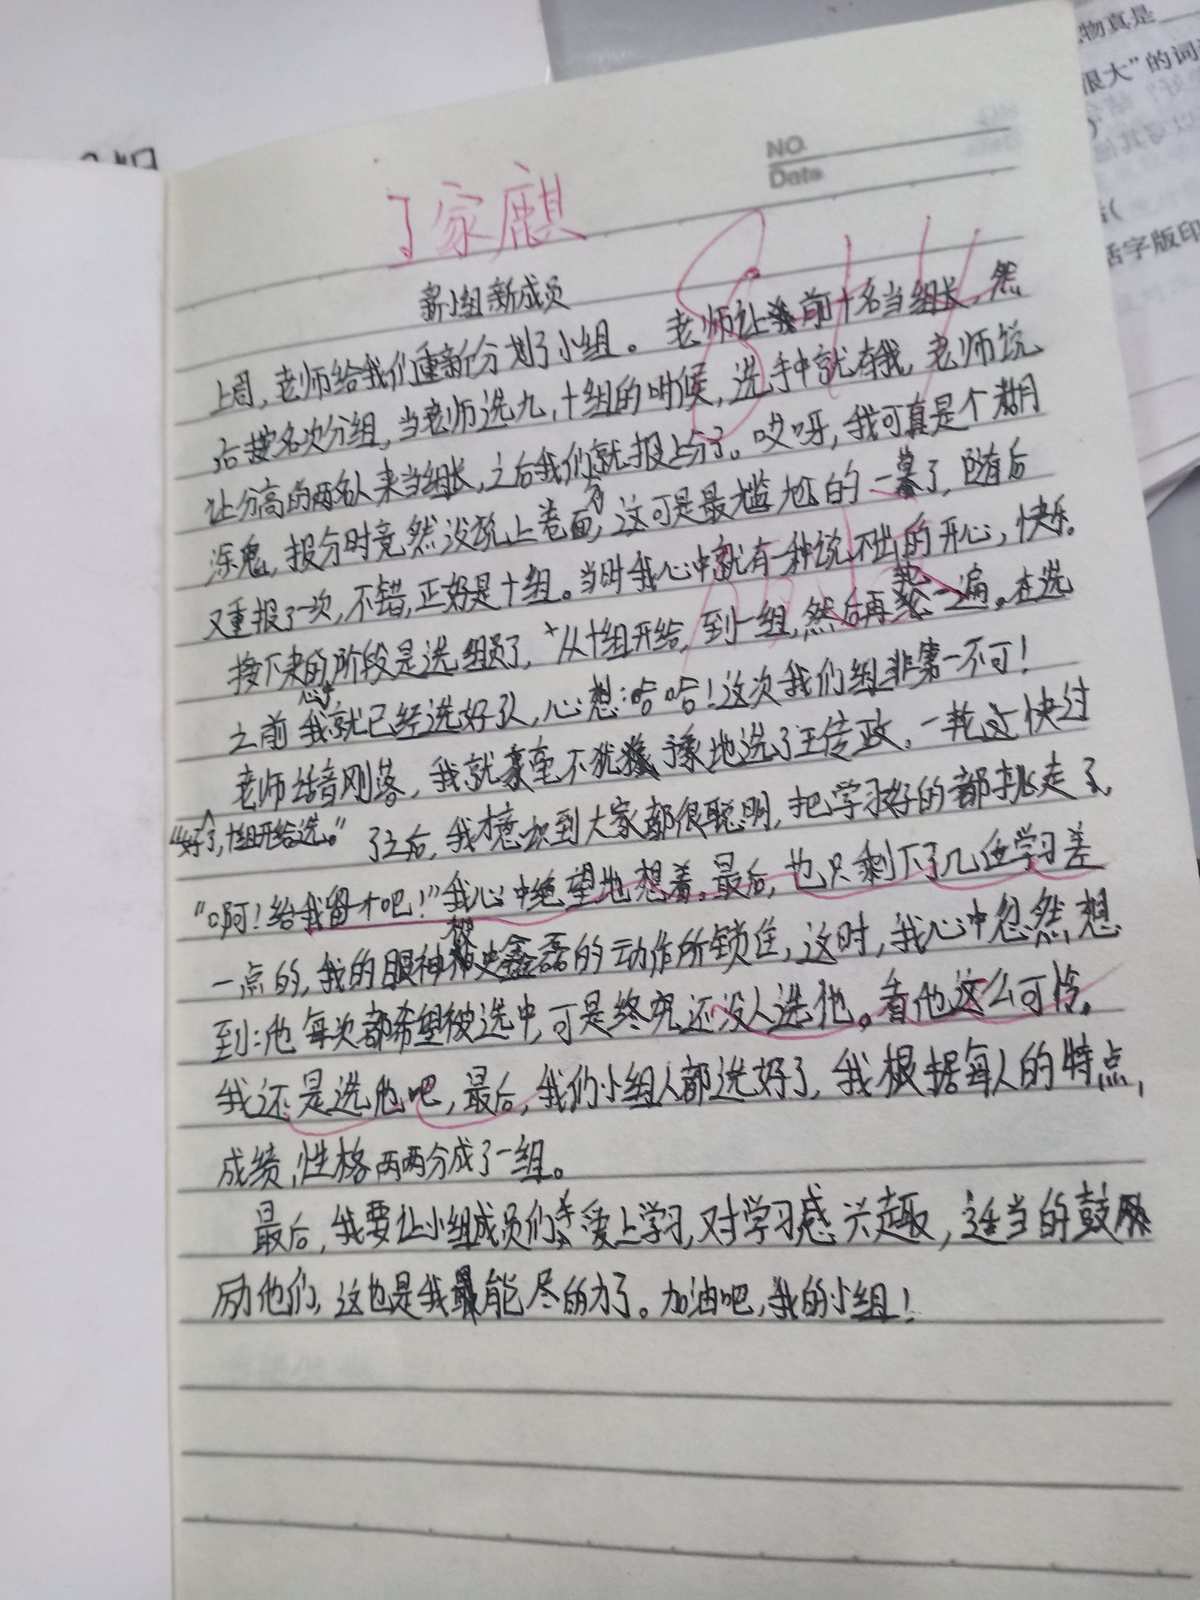 物真是
很大”的词语
活字版印
NO.
Date
丁家麒
新小组新成员
上周,老师给我们重新分划了小组。老师让前十名当组长,然
后按名次分组,当老师选九,十组的时候,选手中就有我,老师说
让分高的两名人来当组长,之后我们就报上分了。哎呀,我可真是个糊
涂鬼,报分时竟然没说上卷面分,这可是最尴尬的一幕了,随后
又重报了一次,不错,正好是十组。当时我心中就有一种说不出的开心,快乐。
接下来的阶段是选组员了,从十组开给,到一组,然后再轮一遍。在选
之前我心中就已经选好了人,心想:哈哈!这次我们组非第一不可!
老师话音刚落,我就毫不犹豫地选了王传政,一轮这快过
“好了,十组开给选。”
了之后,我才意识到大家都很聪明,把学习好的都挑走了,
“啊!给我留个吧!”我心中绝望地想着。最后,也只剩下了几位学习差
一点的,我的眼神被史鑫磊的动作所锁住,这时,我心中忽然想
到:他每次都希望被选中,可是终究还没人选他。看他这么可怜。
我还是选他吧,最后,我们小组人都选好了,我根据每人的特点,
成绩,性格两两分成了一组。
最后,我要让小组成员们去爱上学习,对学习感兴趣,适当的鼓
励他们,这也是我最能尽的力了。加油吧,我的小组!